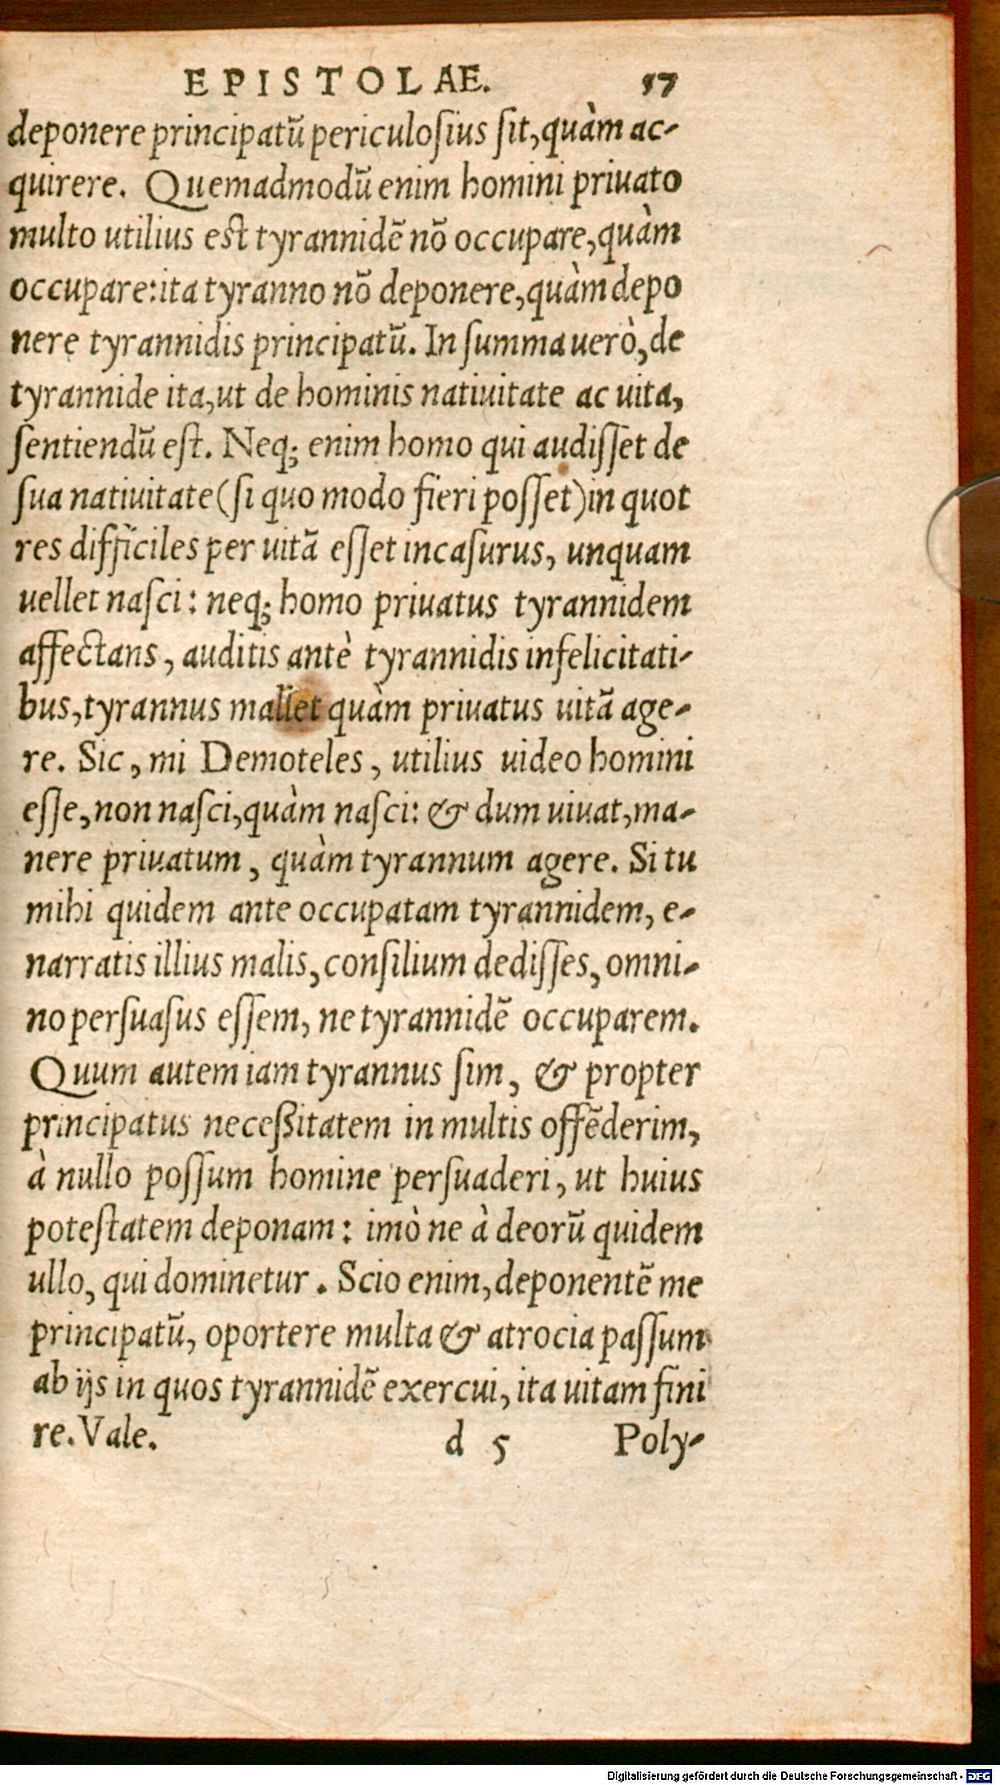 EPISTOLAE. 57
deponere principatū periculoſius ſit, quàm ac-
quirere. Quemadmodū enim homini priuato
multo utilius eſt tyrannidē nō occupare, quàm
occupare: ita tyranno nō deponere, quàm depo
nere tyrannidis principatū. In ſumma uerò, de
tyrannide ita, ut de hominis natiuitate ac uita,
ſentiendū eſt. Neq; enim homo qui audiſſet de
ſua natiuitate (ſi quo modo fieri poſſet) in quot
res difficiles per uitā eſſet incaſurus, unquam
uellet naſci: neq; homo priuatus tyrannidem
affectans, auditis antè tyrannidis infelicitati-
bus, tyrannus mallet quàm priuatus uitā age-
re. Sic, mi Demoteles, utilius uideo homini
eſſe, non naſci, quàm naſci: & dum uiuat, ma-
nere priuatum, quàm tyrannum agere. Si tu
mihi quidem ante occupatam tyrannidem, e-
narratis illius malis, conſilium dediſſes, omni-
no perſuaſus eſſem, ne tyrannidē occuparem.
Quum autem iam tyrannus ſim, & propter
principatus neceßitatem in multis offēderim,
à nullo poſſum homine perſuaderi, ut huius
poteſtatem deponam: imò ne à deorū quidem
ullo, qui dominetur. Scio enim, deponentē me
principatū, oportere multa & atrocia paſſum
ab ijs in quos tyrannidē exercui, ita uitam fini
re. Vale. d 5 Poly-
Digitalisierung gefördert durch die Deutsche Forschungsgemeinschaft - DFG